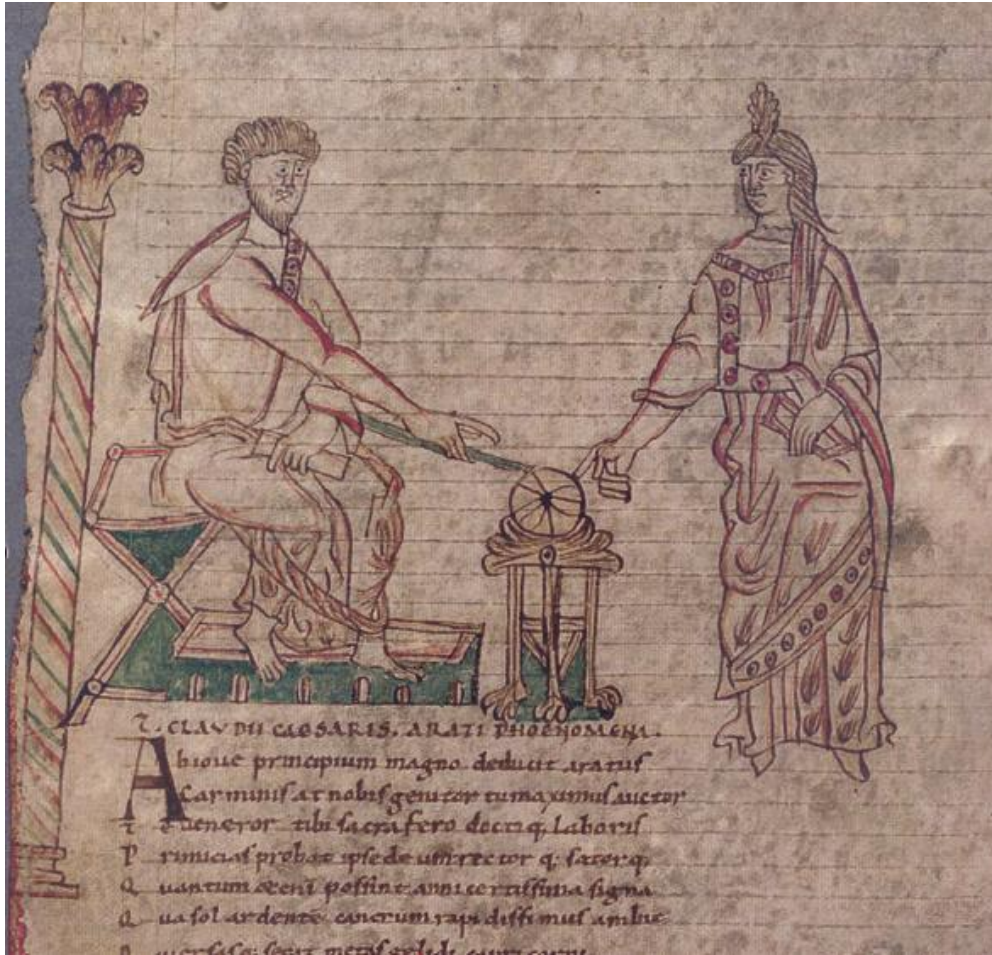 T. CLAVDII CAESARIS. ARATI PHOENOMENA.
Abioue principium magno deducit aratus
Carminis at nobis genitor tu maximus auctor
Te ueneror tibi sacra fero docti q; laboris
Primicias probat ipse deum rector q; sator q;
Quantum etenī possint anni certissima signa
Qua sol ardentē cancrum rapidissimus ambit
secat metas gelidi capricorni